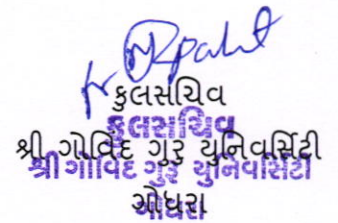 કુલસચિવ
કુલસચિવ
શ્રી ગોવિંદ ગુરુ યુનિવર્સિટી
શ્રી ગોવિંદ ગુરૂ યુનિવર્સિટી
ગોધરા
ગોધરા